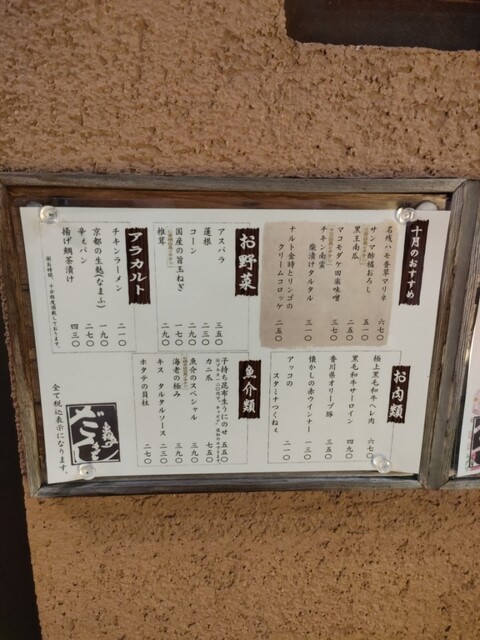 十月のおすすめ
名残ハモ香草マリネ 六七〇
サンマ酢橘おろし 五一〇
黒王南瓜 二五〇
マコモダケ田楽味噌
チキン南蛮
柴漬けタルタル 三一〇
ナルト金時とリンゴの
クリームコロッケ 二五〇
お野菜
アスパラ 三五〇
蓮根 二三〇
コーン 二九〇
国産の旨玉ねぎ 一七〇
椎茸 二九〇
アラカルト
チキンラーメン 二一〇
京都の生麩(なまふ) 一九〇
辛えパン 二七〇
揚げ鯛茶漬け 四三〇
お肉類
極上黒毛和牛ヘレ肉 六七〇
黒毛和牛サーロイン 四九〇
香川県オリーブ豚 三五〇
懐かしの赤ウインナー 一三〇
アッコの
スタミナつくねぇ 二一〇
魚介類
子持ち昆布生うにのせ 五五〇
カニ爪 七五〇
魚介のスペシャル 三九〇
海老の極み 三九〇
キス タルタルソース 二三〇
ホタテの貝柱 二七〇
全て税込表示になります。